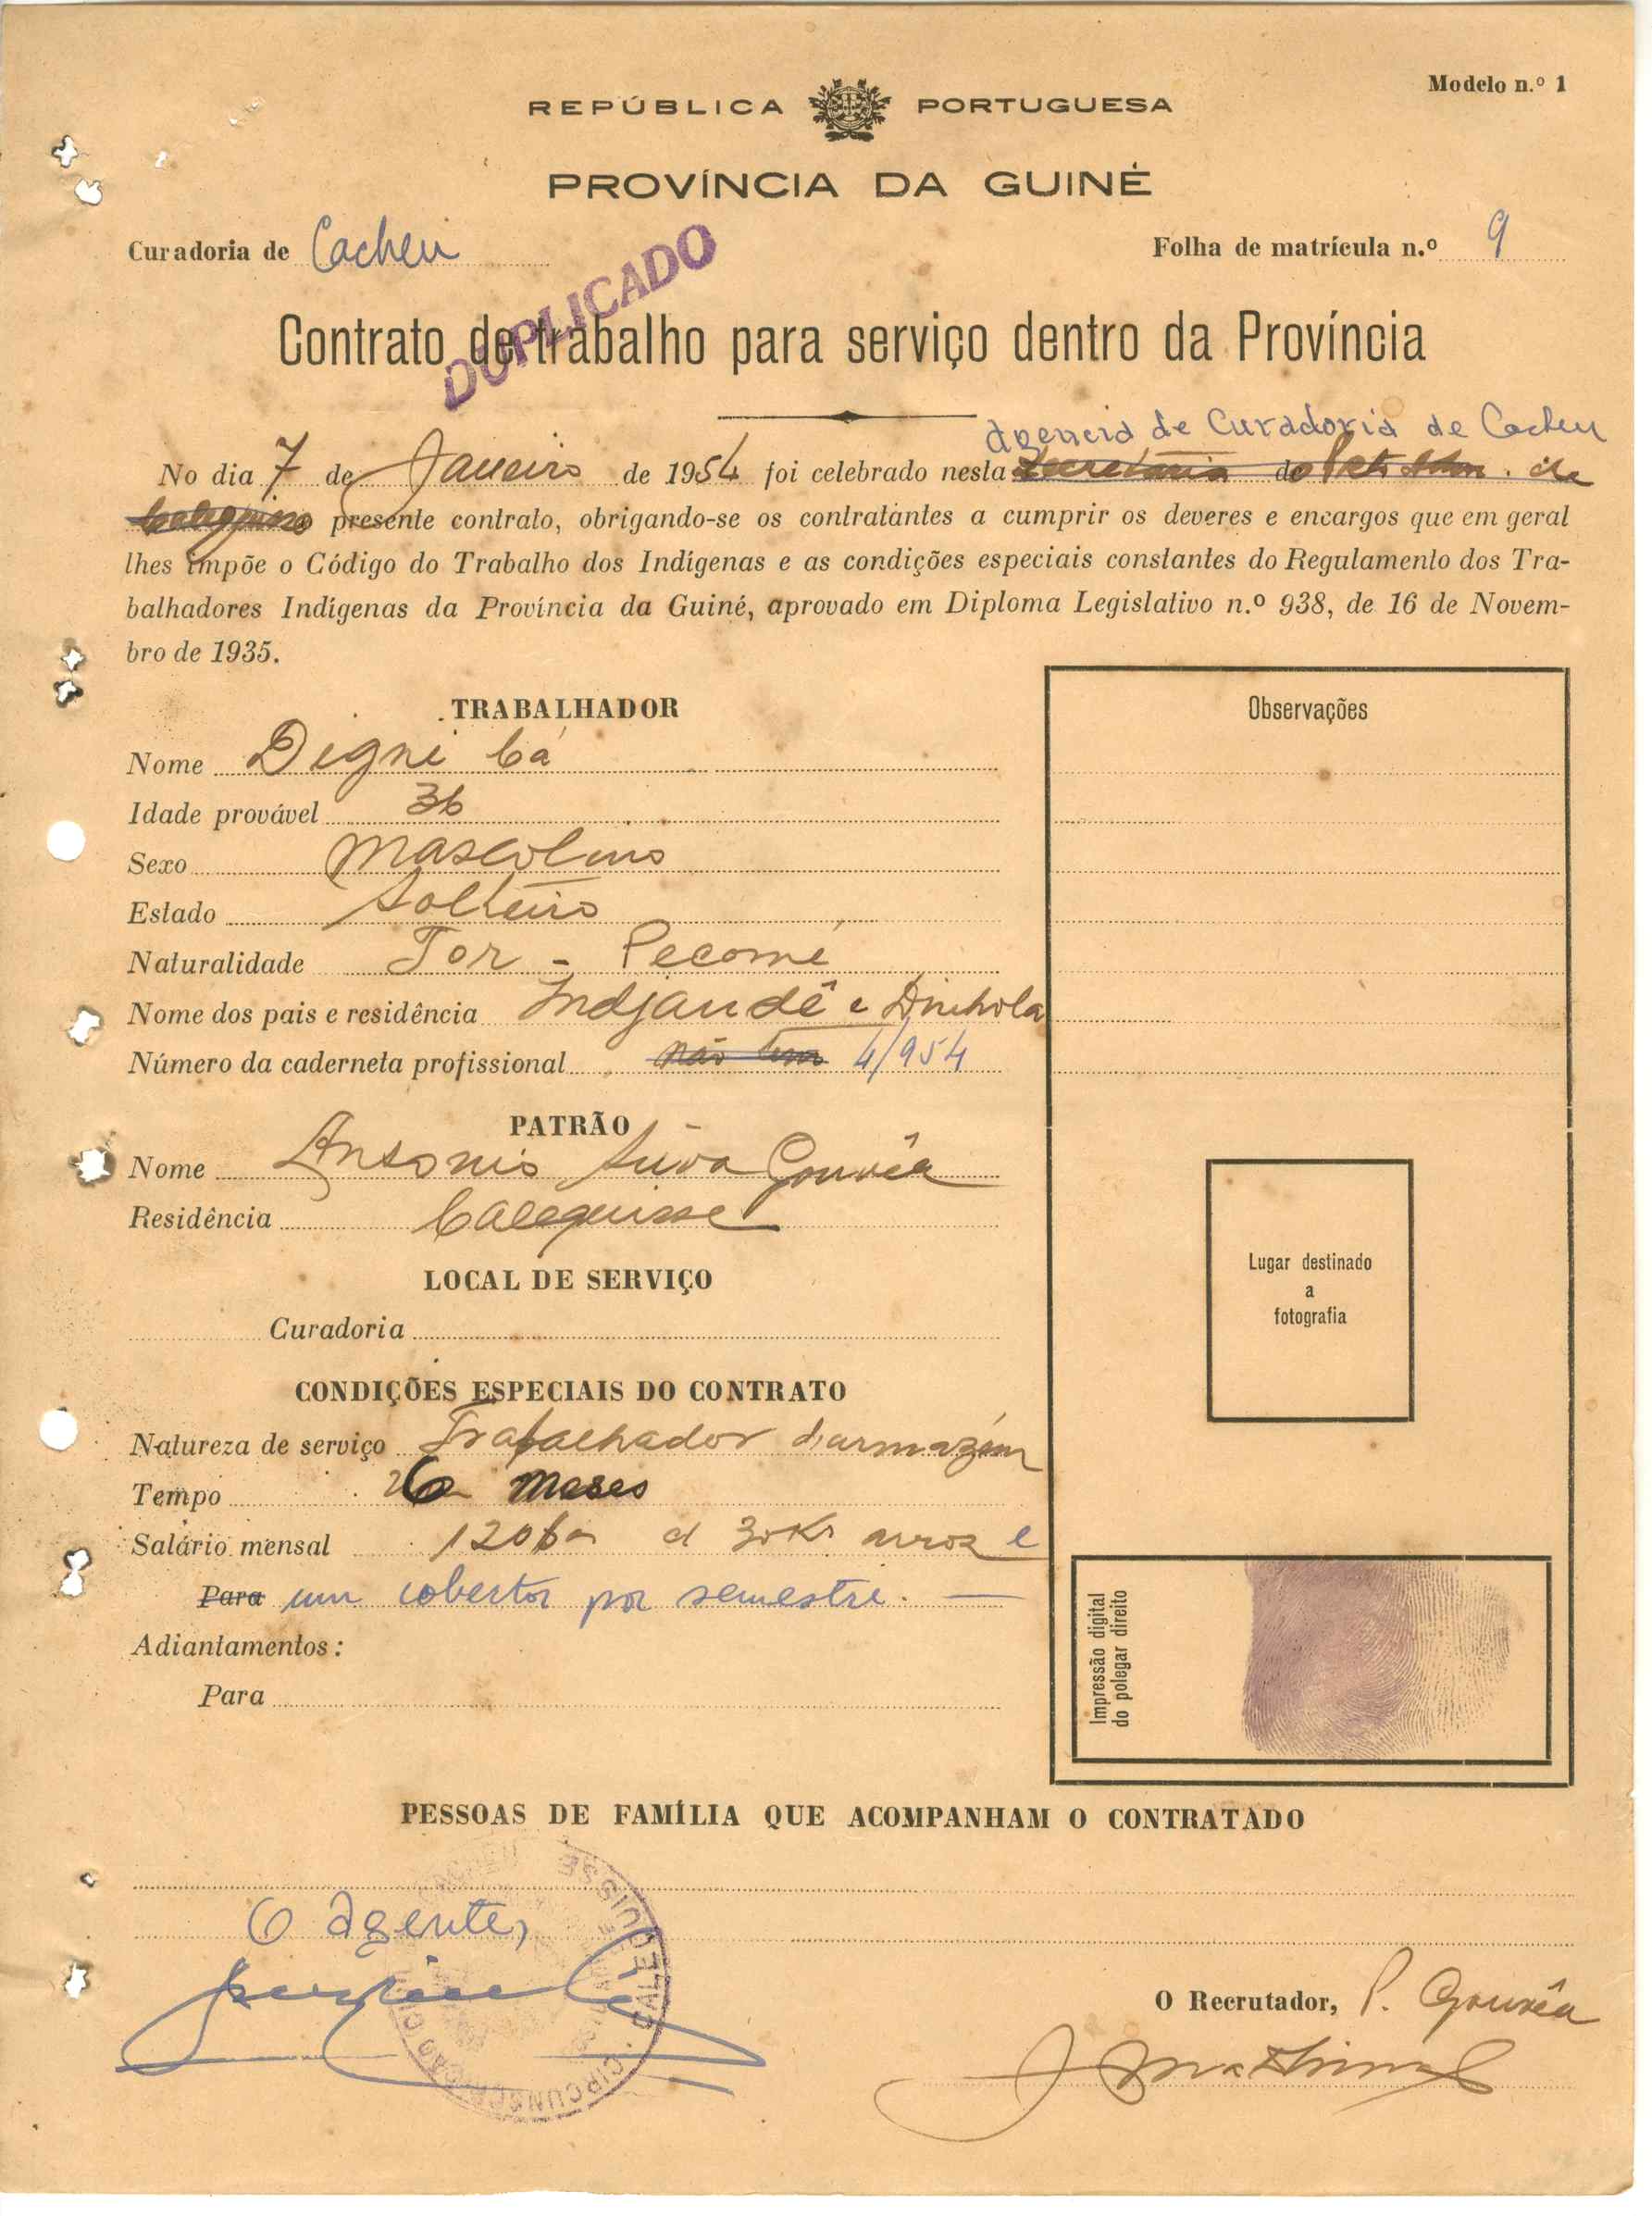 Modelo n.º 1
REPÚBLICA PORTUGUESA
PROVÍNCIA DA GUINÉ
Curadoria de Cacheu
Folha de matrícula n.º 9
DUPLICADO
Contrato de trabalho para serviço dentro da Província
Agencia de Curadoria de Cacheu
No dia 7 de Janeiro de 1954 foi celebrado nesta Secretaria do de
presente contrato, obrigando-se os contratantes a cumprir os deveres e encargos que em geral
lhes impõe o Código do Trabalho dos Indígenas e as condições especiais constantes do Regulamento dos Tra-
balhadores Indígenas da Província da Guiné, aprovado em Diploma Legislativo n.º 938, de 16 de Novem-
bro de 1935.
TRABALHADOR
Observações
Nome Digni Cá
Idade provável 36
Sexo Mascolino
Estado Solteiro
Naturalidade Tor - Pecomé
Nome dos pais e residência Indjandê e Dinhola
Número da caderneta profissional não tem 4/954
PATRÃO
Nome Antonio Silva Gouvêa
Residência Calequisse
Lugar destinado
a
fotografia
LOCAL DE SERVIÇO
Curadoria
CONDIÇÕES ESPECIAIS DO CONTRATO
Natureza de serviço Trabalhador d'armazém
Tempo 6 meses
Salário mensal 120 30Ks arroz e
Para um cobertor por semestre.
Adiantamentos:
Para
Impressão digital
do polegar direito
PESSOAS DE FAMÍLIA QUE ACOMPANHAM O CONTRATADO
O Agente,
CALEQUISSE
O Recrutador, P. Gouvêa